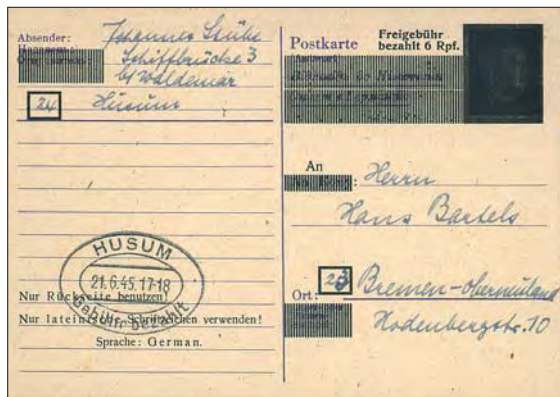 Absender:
Johannes
Schiffbrücke 3
b/ Waldemar
24
Husum
HUSUM
21.6.45.17-18
Gebühr bezahlt
Nur Rückseite benutzen!
Nur lateinische Schriftzeichen verwenden!
Sprache: German.
Postkarte
Freigebühr
bezahlt 6 Rpf.
An
Herrn
Hans Bartels
23
Ort:
Bremen-Oberneuland
Hodenbergstr. 10